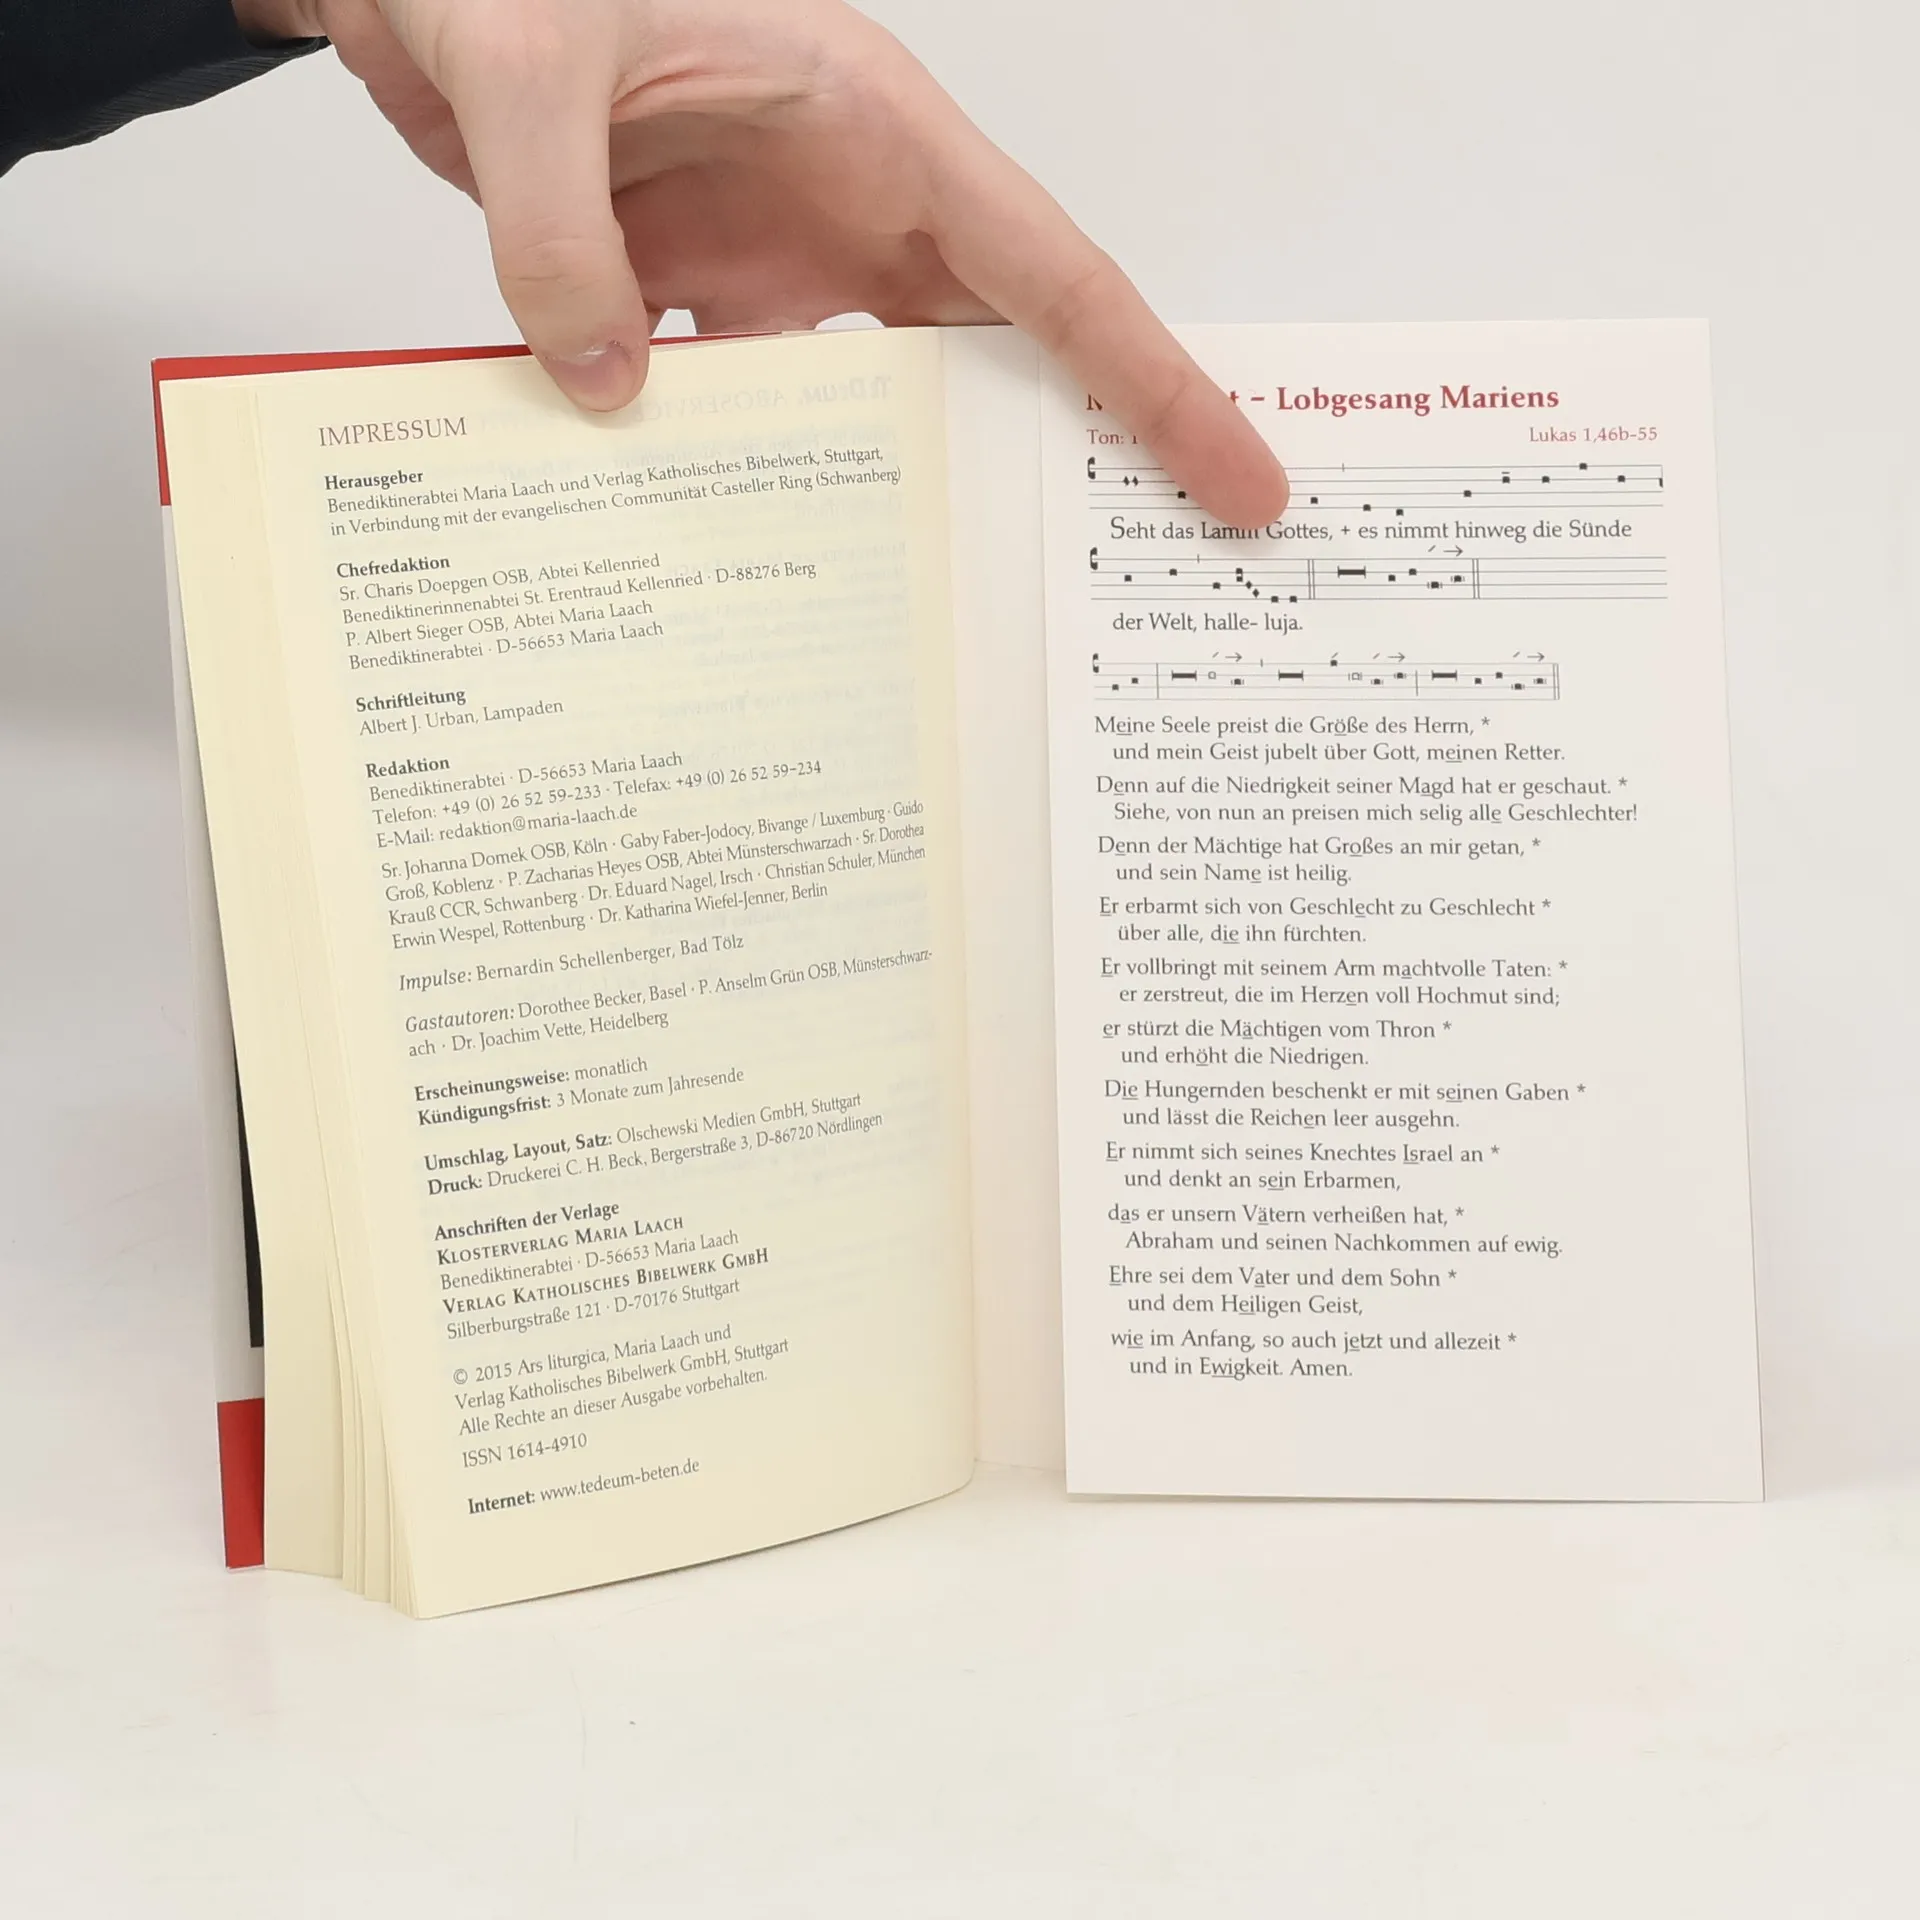 IMPRESSUM
Herausgeber
Benediktinerabtei Maria Laach und Verlag Katholisches Bibelwerk, Stuttgart,
in Verbindung mit der evangelischen Communität Casteller Ring (Schwanberg)
Chefredaktion
Sr. Charis Doepgen OSB, Abtei Kellenried
Benediktinerinnenabtei St. Erentraud Kellenried · D-88276 Berg
P. Albert Sieger OSB, Abtei Maria Laach
Benediktinerabtei · D-56653 Maria Laach
Schriftleitung
Albert J. Urban, Lampaden
Redaktion
Benediktinerabtei · D-56653 Maria Laach
Telefon: +49 (0) 26 52 59-233 · Telefax: +49 (0) 26 52 59-234
E-Mail: redaktion@maria-laach.de
Sr. Johanna Domek OSB, Köln · Gaby Faber-Jodocy, Bivange / Luxemburg · Guido
Groß, Koblenz · P. Zacharias Heyes OSB, Abtei Münsterschwarzach · Sr. Dorothea
Krauß CCR, Schwanberg · Dr. Eduard Nagel, Irsch · Christian Schuler, München
Erwin Wespel, Rottenburg · Dr. Katharina Wiefel-Jenner, Berlin
Impulse: Bernardin Schellenberger, Bad Tölz
Gastautoren: Dorothee Becker, Basel · P. Anselm Grün OSB, Münsterschwarz-
ach · Dr. Joachim Vette, Heidelberg
Erscheinungsweise: monatlich
Kündigungsfrist: 3 Monate zum Jahresende
Umschlag, Layout, Satz: Olschewski Medien GmbH, Stuttgart
Druck: Druckerei C. H. Beck, Bergerstraße 3, D-86720 Nördlingen
Anschriften der Verlage
KLOSTERVERLAG MARIA LAACH
Benediktinerabtei · D-56653 Maria Laach
VERLAG KATHOLISCHES BIBELWERK GMBH
Silberburgstraße 121 · D-70176 Stuttgart
© 2015 Ars liturgica, Maria Laach und
Verlag Katholisches Bibelwerk GmbH, Stuttgart
Alle Rechte an dieser Ausgabe vorbehalten.
ISSN 1614-4910
Internet: www.tedeum-beten.de
– Lobgesang Mariens
Ton:
Lukas 1,46b-55
Seht das Lamm Gottes, + es nimmt hinweg die Sünde
der Welt, halle- luja.
Meine Seele preist die Größe des Herrn, *
und mein Geist jubelt über Gott, meinen Retter.
Denn auf die Niedrigkeit seiner Magd hat er geschaut. *
Siehe, von nun an preisen mich selig alle Geschlechter!
Denn der Mächtige hat Großes an mir getan, *
und sein Name ist heilig.
Er erbarmt sich von Geschlecht zu Geschlecht *
über alle, die ihn fürchten.
Er vollbringt mit seinem Arm machtvolle Taten: *
er zerstreut, die im Herzen voll Hochmut sind;
er stürzt die Mächtigen vom Thron *
und erhöht die Niedrigen.
Die Hungernden beschenkt er mit seinen Gaben *
und lässt die Reichen leer ausgehn.
Er nimmt sich seines Knechtes Israel an *
und denkt an sein Erbarmen,
das er unsern Vätern verheißen hat, *
Abraham und seinen Nachkommen auf ewig.
Ehre sei dem Vater und dem Sohn *
und dem Heiligen Geist,
wie im Anfang, so auch jetzt und allezeit *
und in Ewigkeit. Amen.